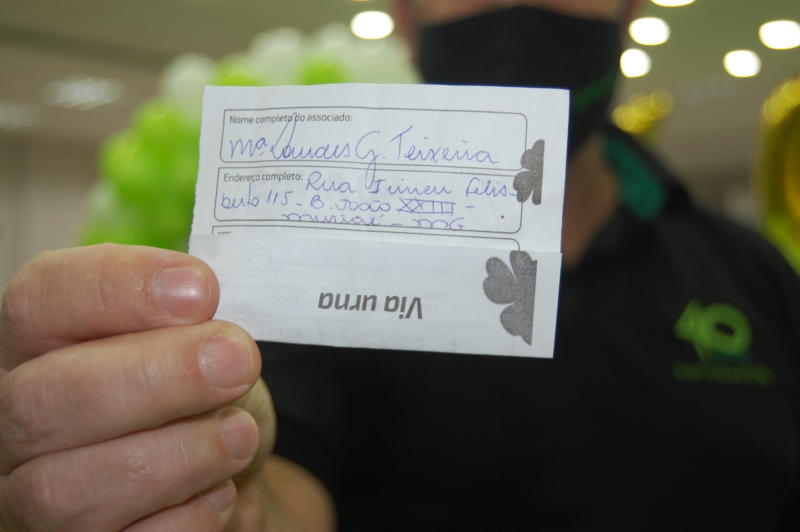 Nome completo do associado:
Mª Lourdes G. Teixeira
Endereço completo: Rua Irineu Felis-
berto 115 - B. João XXIII -
Muriaé - MG
Via urna
40